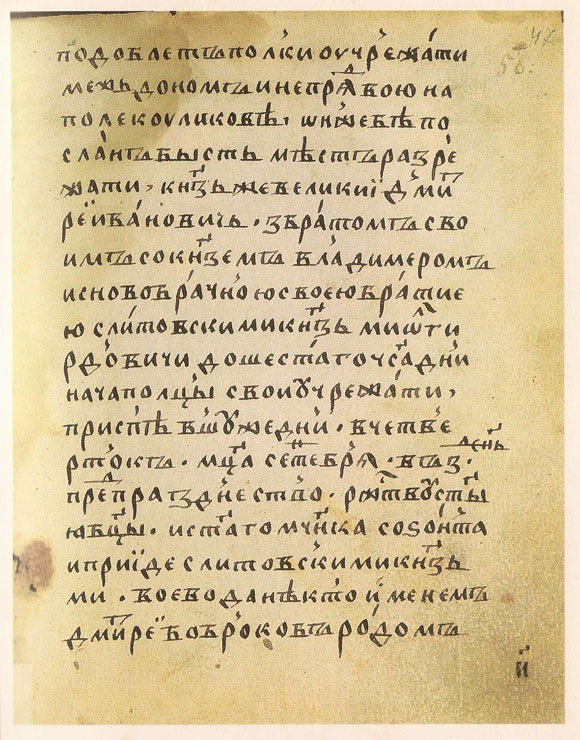 47
56.
подобаетъ полки оучрежа́ти
межь дономъ и непрѧ́двою на
поле коуликовѣ, ѡни́же бѣ по
сланъ бысть мѣстъ разрѣ
жати, кнз҃ь же великиї дм҃и
рѣй ива́новичь. з бра́томъ сво
имъ со кнз҃емъ влади́меромъ
и сновобра́чною своею бра́тие
ю слито́вскими кнз҃ь ми ѿлги
рдо́вичи дошеста́го час҃а дн҃и
нача полцы́ свои оучрежа́ти,
приспѣ вшу́ же дн҃и. в четве
рто́къ. мц҃а сеⷩ҇тебрѧ́. въ з҃. день
преⷣпразднество. ржⷭ҇тву ст҃ы
ю бц҃ы. и ст҃аго мч҃нка созо́нта
и прїиде слито́вскими кнз҃ь
ми. воевода нѣкто и́менемъ
дми́трей бобро́ковъ ро́домъ
и҃